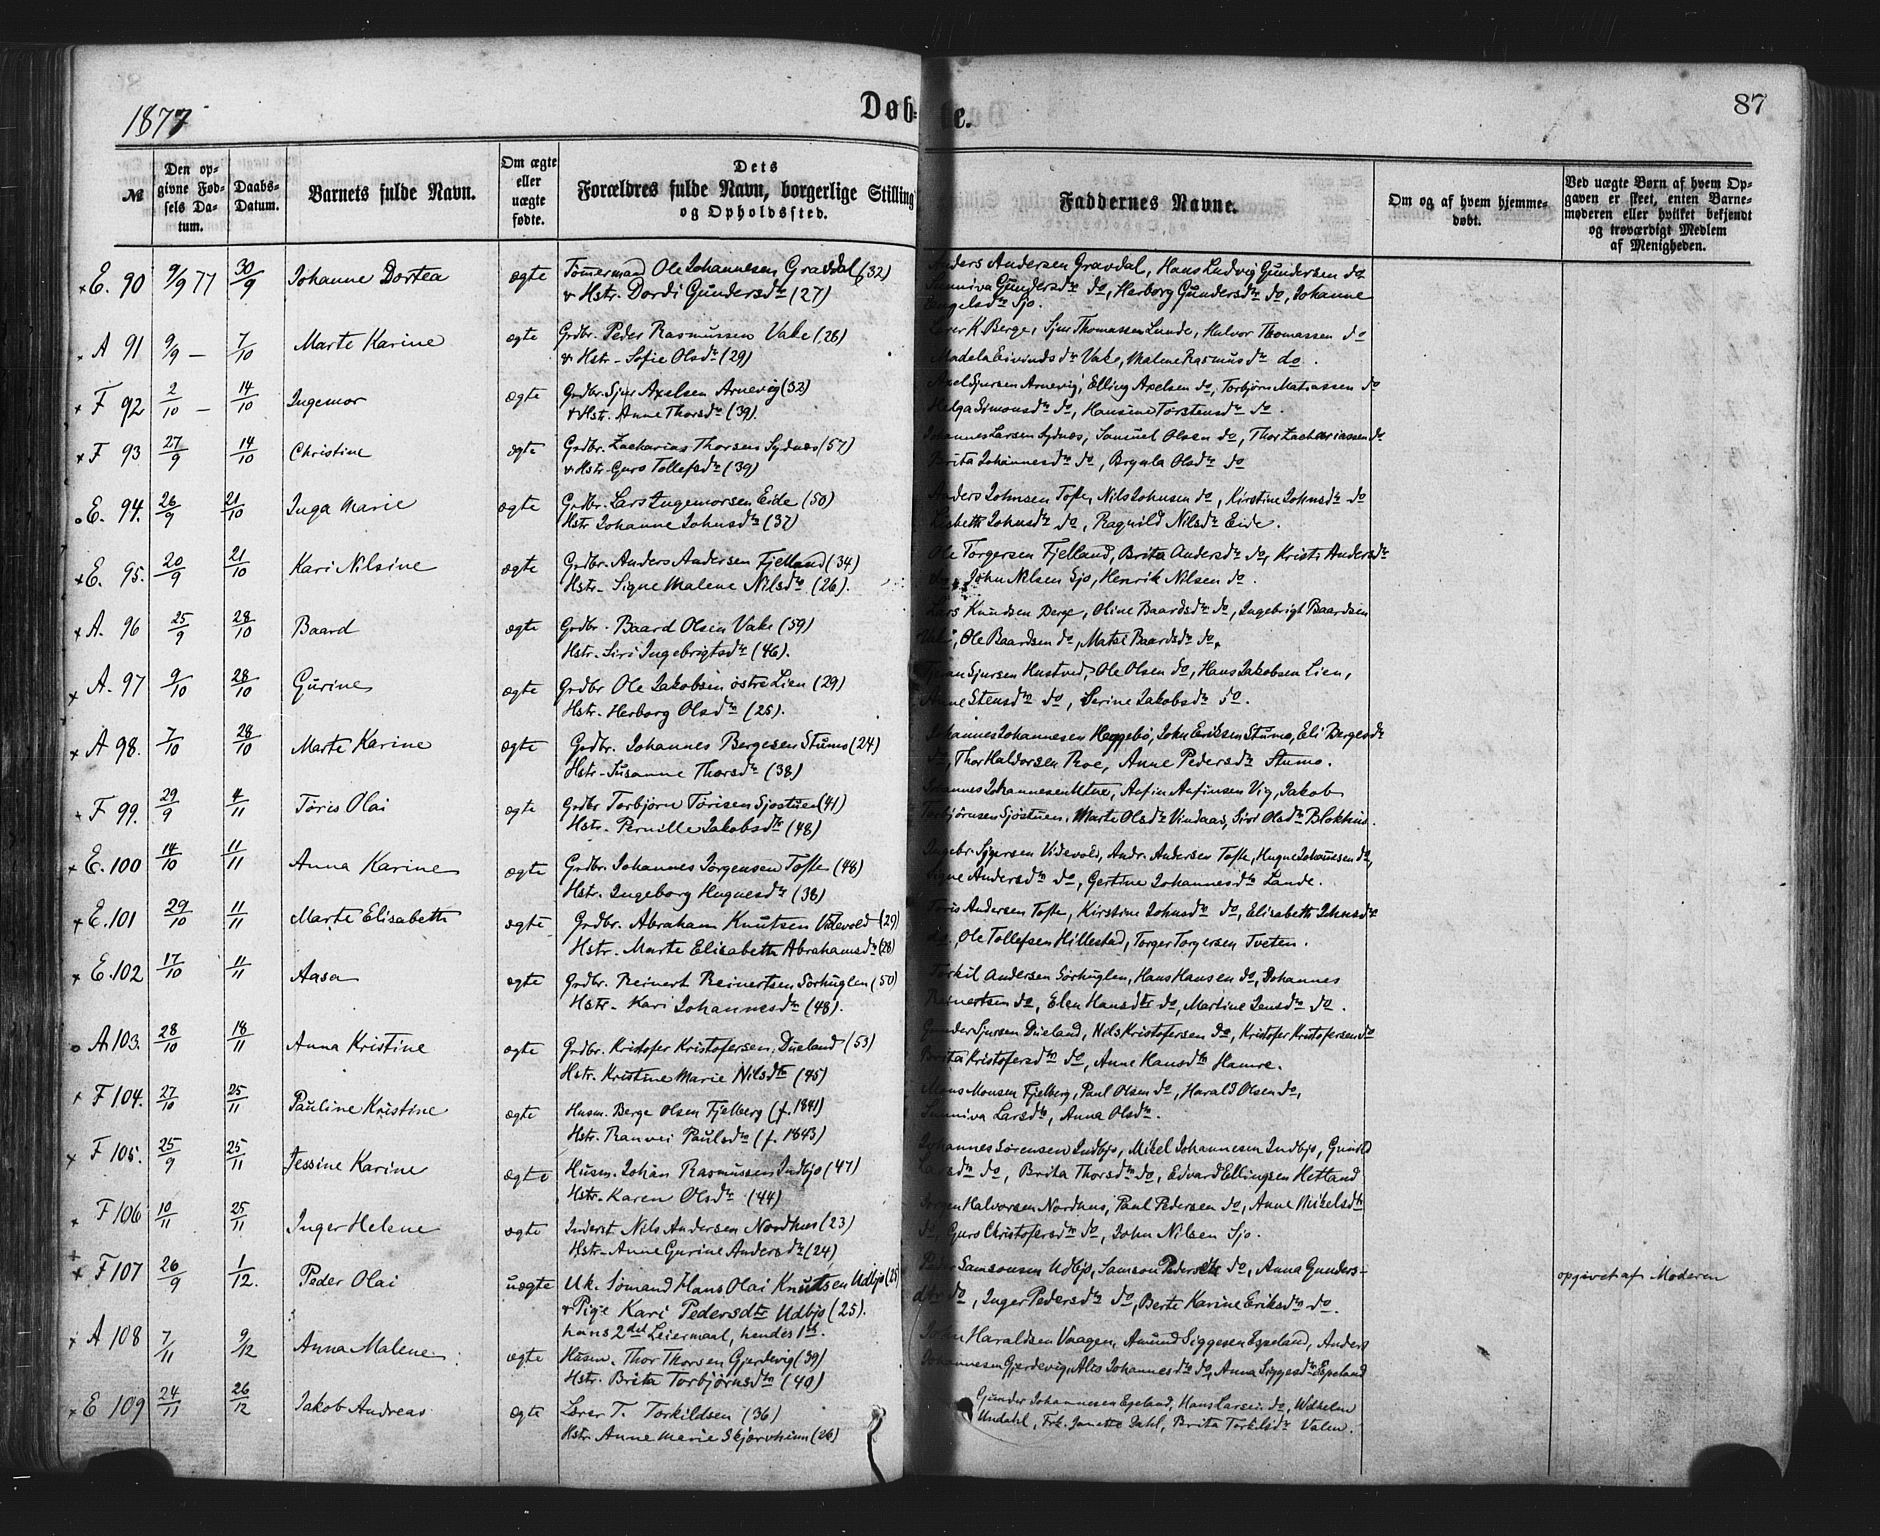 1877
Døb-
te.
87
№
Den op-
givne Fød-
sels Da-
tum.
Daabs-
Datum.
Barnets fulde Navn.
Om ægte
eller
uægte
fødte.
Dets
Forældres fulde Navn, borgerlige Stilling
og Opholdssted.
Faddernes Navne.
Om og af hvem hjemme-
døbt.
Ved uægte Børn af hvem Op-
gaven er skeet, enten Barne-
moderen eller hvilket bekjendt
og troværdigt Medlem
af Menigheden.
E. 90 9/9 77 30/9 Johanne Dortea ægte Tømermand Ole Johannesen Gravdal (32) Anders Andersen Gravdal, Hans Ludvig Gundersen do
& Hstr. Dordi Gundersdtr (27) Sunniva Gundersdtr do, Herborg Gundersdtr do, Johanne
Engelsdtr Sjo.
A 91 9/9 – 7/10 Marte Karine ægte Grdbr. Peder Rasmussen Vake (28) Lærer K. Berge, Sjur Thomassen Lunde, Halvor Thomassen do
& Hstr. Sofie Olsdtr (29) Madela Eivindsdtr Vake, Malene Rasmusdtr do.
F 92 2/10 – 14/10 Ingemor ægte Grdbr. Sjur Axelsen Arnevig (32) Axel Sjursen Arnevig, Elling Axelsen do, Torbjørn Matiassen do
& Hstr. Anne Thorsdtr (39). Helga Simonsdtr do, Hansine Torstensdtr do.
F 93 27/9 14/10 Christine ægte Grdbr. Zacharias Thorsen Sydnæs (57) Johannes Larsen Sydnæs, Samuel Olsen do, Thor Zachariassen do
& Hstr. Guro Tollefsdtr (39) Brita Johannesdtr do, Brynla Olsdtr do
E. 94. 26/9 21/10 Inga Marie ægte Grdbr. Lars Ingemorsen Eide (50) Anders Johnsen Tofte, Nils Johnsen do, Kirstine Johnsdtr do
Hstr Johanne Johnsdtr (37) Lisbeth Johnsdtr do, Ragnild Nilsdtr Eide.
E. 95. 20/9 21/10 Kari Nilsine ægte Grdbr. Anders Andersen Fjelland (34) Ole Torgersen Fjelland, Brita Andersdtr do, Kristi Andersdtr
Hstr. Signe Malene Nilsdtr (26). do, John Nilsen Sjo, Henrik Nilsen do.
A. 96 25/9 28/10 Baard ægte Grdbr. Baard Olsen Vake (59) Lars Knudsen Berge, Oline Baardsdtr do, Ingebrigt Baardsen
Hstr. Siri Ingebrigtsdtr (46). Vake, Ole Baardsen do, Matsi Baardsdtr do.
A. 97 9/10 28/10 Gurine ægte Grdbr Ole Jakobsen østre Lien (29) Sjursen Hustved, Ole Olsen do, Hans Jakobsen Lien,
Hstr. Herborg Olsdtr (25). Anne Stensdtr do, Serine Jakobsdtr do.
A 98. 7/10 28/10 Marte Karine ægte Grdbr. Johannes Bergesen Stumo (24) Johannes Johannesen Heggebø, John Eriksen Stumo, Eli Bergesdtr
Hstr. Susanne Thorsdtr (38) do, Thor Haldorsen Roe, Anne Pedersdtr Stumo.
F 99. 29/9 4/11 Tøris Olai ægte Grdbr Torbjørn Tørisen Sjøstuen (41) Johannes Johannesen Utne, Anfin Anfinsen Vig, Jakob
Hstr. Pernille Jakobsdtr (48) Torbjørnsen Sjøstuen, Marte Olsdtr Vindaas, Siri Olsdtr Blokhus.
E. 100 14/10 11/11 Anna Karine ægte Grdbr. Johannes Jørgensen Tofte (48) Ingebr. Sjursen Videvold, Andr. Andersen Tofte, Hugne Johannesen do,
Hstr. Ingeborg Hugnesdtr (38) Signe Andersdtr do, Gertine Johannesdtr Lande.
E. 101 29/10 11/11 Marte Elisabeth ægte Grdbr. Abraham Knutsen Videvold (29) Tøris Andersen Tofte, Kirstine Johnsdtr do, Elisabeth Johnsdtr
Hstr. Marte Elisabeth Abrahamsdtr (28) do, Ole Tollefsen Hillestad, Torger Torgersen Tveten.
E. 102 17/10 11/11 Aasa ægte Grdbr. Reinert Reinertsen Sørhuglen (50) Torkil Andersen Sørhuglen, Hans Hansen do, Johannes
Hstr. Kari Johannesdtr (48). Reinertsen do, Elen Hansdtr do, Martine Jensdtr do.
A. 103. 28/10 18/11 Anna Kristine ægte Grdbr. Kristofer Kristofersen Dueland (53) Gunder Sjursen Dueland, Nils Kristofersen do, Kristofer Kristofersen do
Hstr. Kristine Marie Nilsdtr (45) Brita Kristofersdtr do, Anne Hansdtr Hamre.
F 104. 27/10 25/11 Pauline Kristine ægte Husm. Berge Olsen Fjelberg (f. 1841) Mons Monsen Fjelberg, Paul Olsen do, Harald Olsen do,
Hstr. Ranvei Paulsdtr (f. 1843) Sunniva Larsdtr, Anna Olsdtr.
F 105. 25/9 25/11 Jessine Karine ægte Husm. Johan Rasmussen Indbjo (47) Johannes Sørensen Indbjo, Mikel Johannesen Indbjo, Gunild
Hstr. Karen Olsdtr (44) Larsdtr do, Brita Thorsdtr do, Edvard Ellingsen Hetland
F 106 10/11 25/11 Inger Helene ægte Inderst. Nils Andersen Nordhus (23) Jørgen Halvorsen Nordhus, Paul Pedersen do, Anne Mikelsdtr
Hstr. Anne Gurine Andersdtr (24) do, Guro Christofersdtr do, John Nilsen Sjo.
F 107 26/9 1/12. Peder Olai uægte Uk. Sømand Hans Olai Knutsen Udbjo (25) Peder Samsonsen Udbjo, Samson Pedersen do, Anna Gunders- opgivet af Moderen
& Pige Kari Pedersdtr Udbjo (25). dtr do, Inger Pedersdtr do, Berte Karine Eriksdtr do.
hans 2det Leiermaal, hendes 1st.
A 108 7/11 9/12 Anna Malene ægte Husm. Thor Thorsen Gjerdevig (39) John Haraldsen Vaagen, Amund Siggesen Egeland, Anders
Hstr. Brita Torbjørnsdtr (40) Johannesen Gjerdevig, Alis Johannesdtr do, Anna Siggesdtr Egeland
E 109 24/11 26/12 Jakob Andreas ægte Lærer T. Torkildsen (36) Gunder Johannesen Egeland, Hans Larsen do, Wilhelm
Hstr. Anne Marie Skjørvheim (26) Undahl, Frk. Janette Dahl, Brita Torkilsdtr Valen.